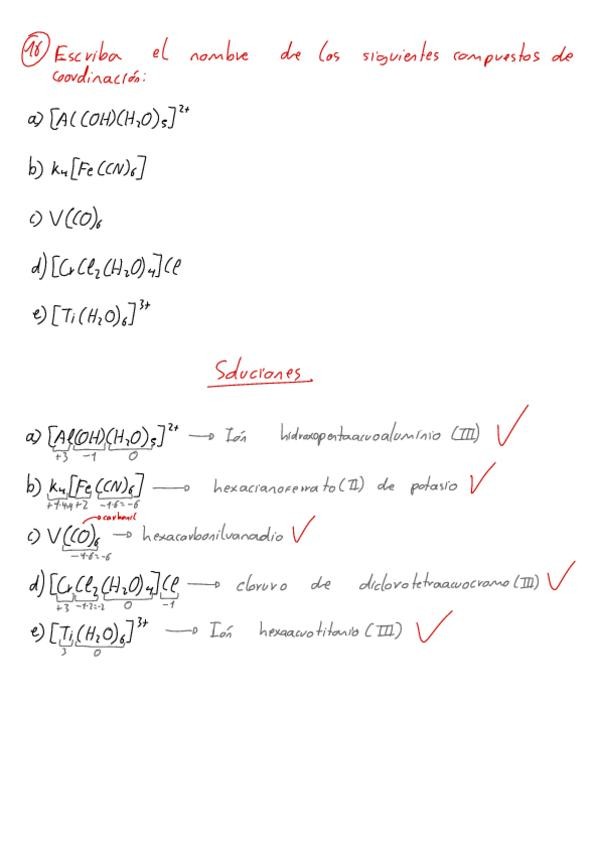 18 Escriba el nombre de los siguientes compuestos de
coordinación:
a) [Al(OH)(H₂O)₅]²⁺
b) K₄[Fe(CN)₆]
c) V(CO)₆
d) [CrCl₂(H₂O)₄]Cl
e) [Ti(H₂O)₆]³⁺
Soluciones.
a) [Al(OH)(H₂O)₅]²⁺ → Ión hidroxopentaacuoaluminio (III) ✓
+3 -1 0
b) K₄[Fe(CN)₆] → hexacianoferrato (II) de potasio ✓
+1·4=4 +2 -1·6=-6
carbonil
c) V(CO)₆ → hexacarbonilvanadio ✓
-1·6=-6
d) [CrCl₂(H₂O)₄]Cl → cloruro de diclorotetraacuocromo (III) ✓
+3 -1·2=-2 0 -1
e) [Ti(H₂O)₆]³⁺ → Ión hexaacuotitanio (III) ✓
3 0